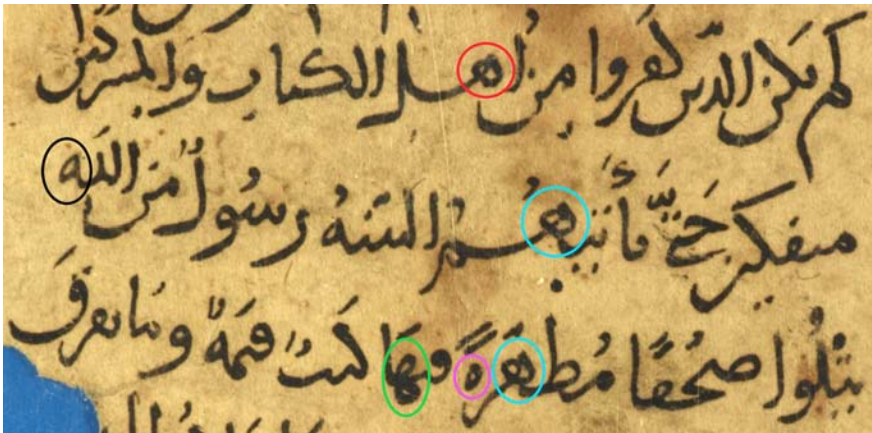 لم يكن الذين كفروا من اهل الكتاب والمشركين
منفكين حتى تأتيهم البينة رسول من الله
يتلوا صحفا مطهرة فيها كتب قيمة وما تفرق